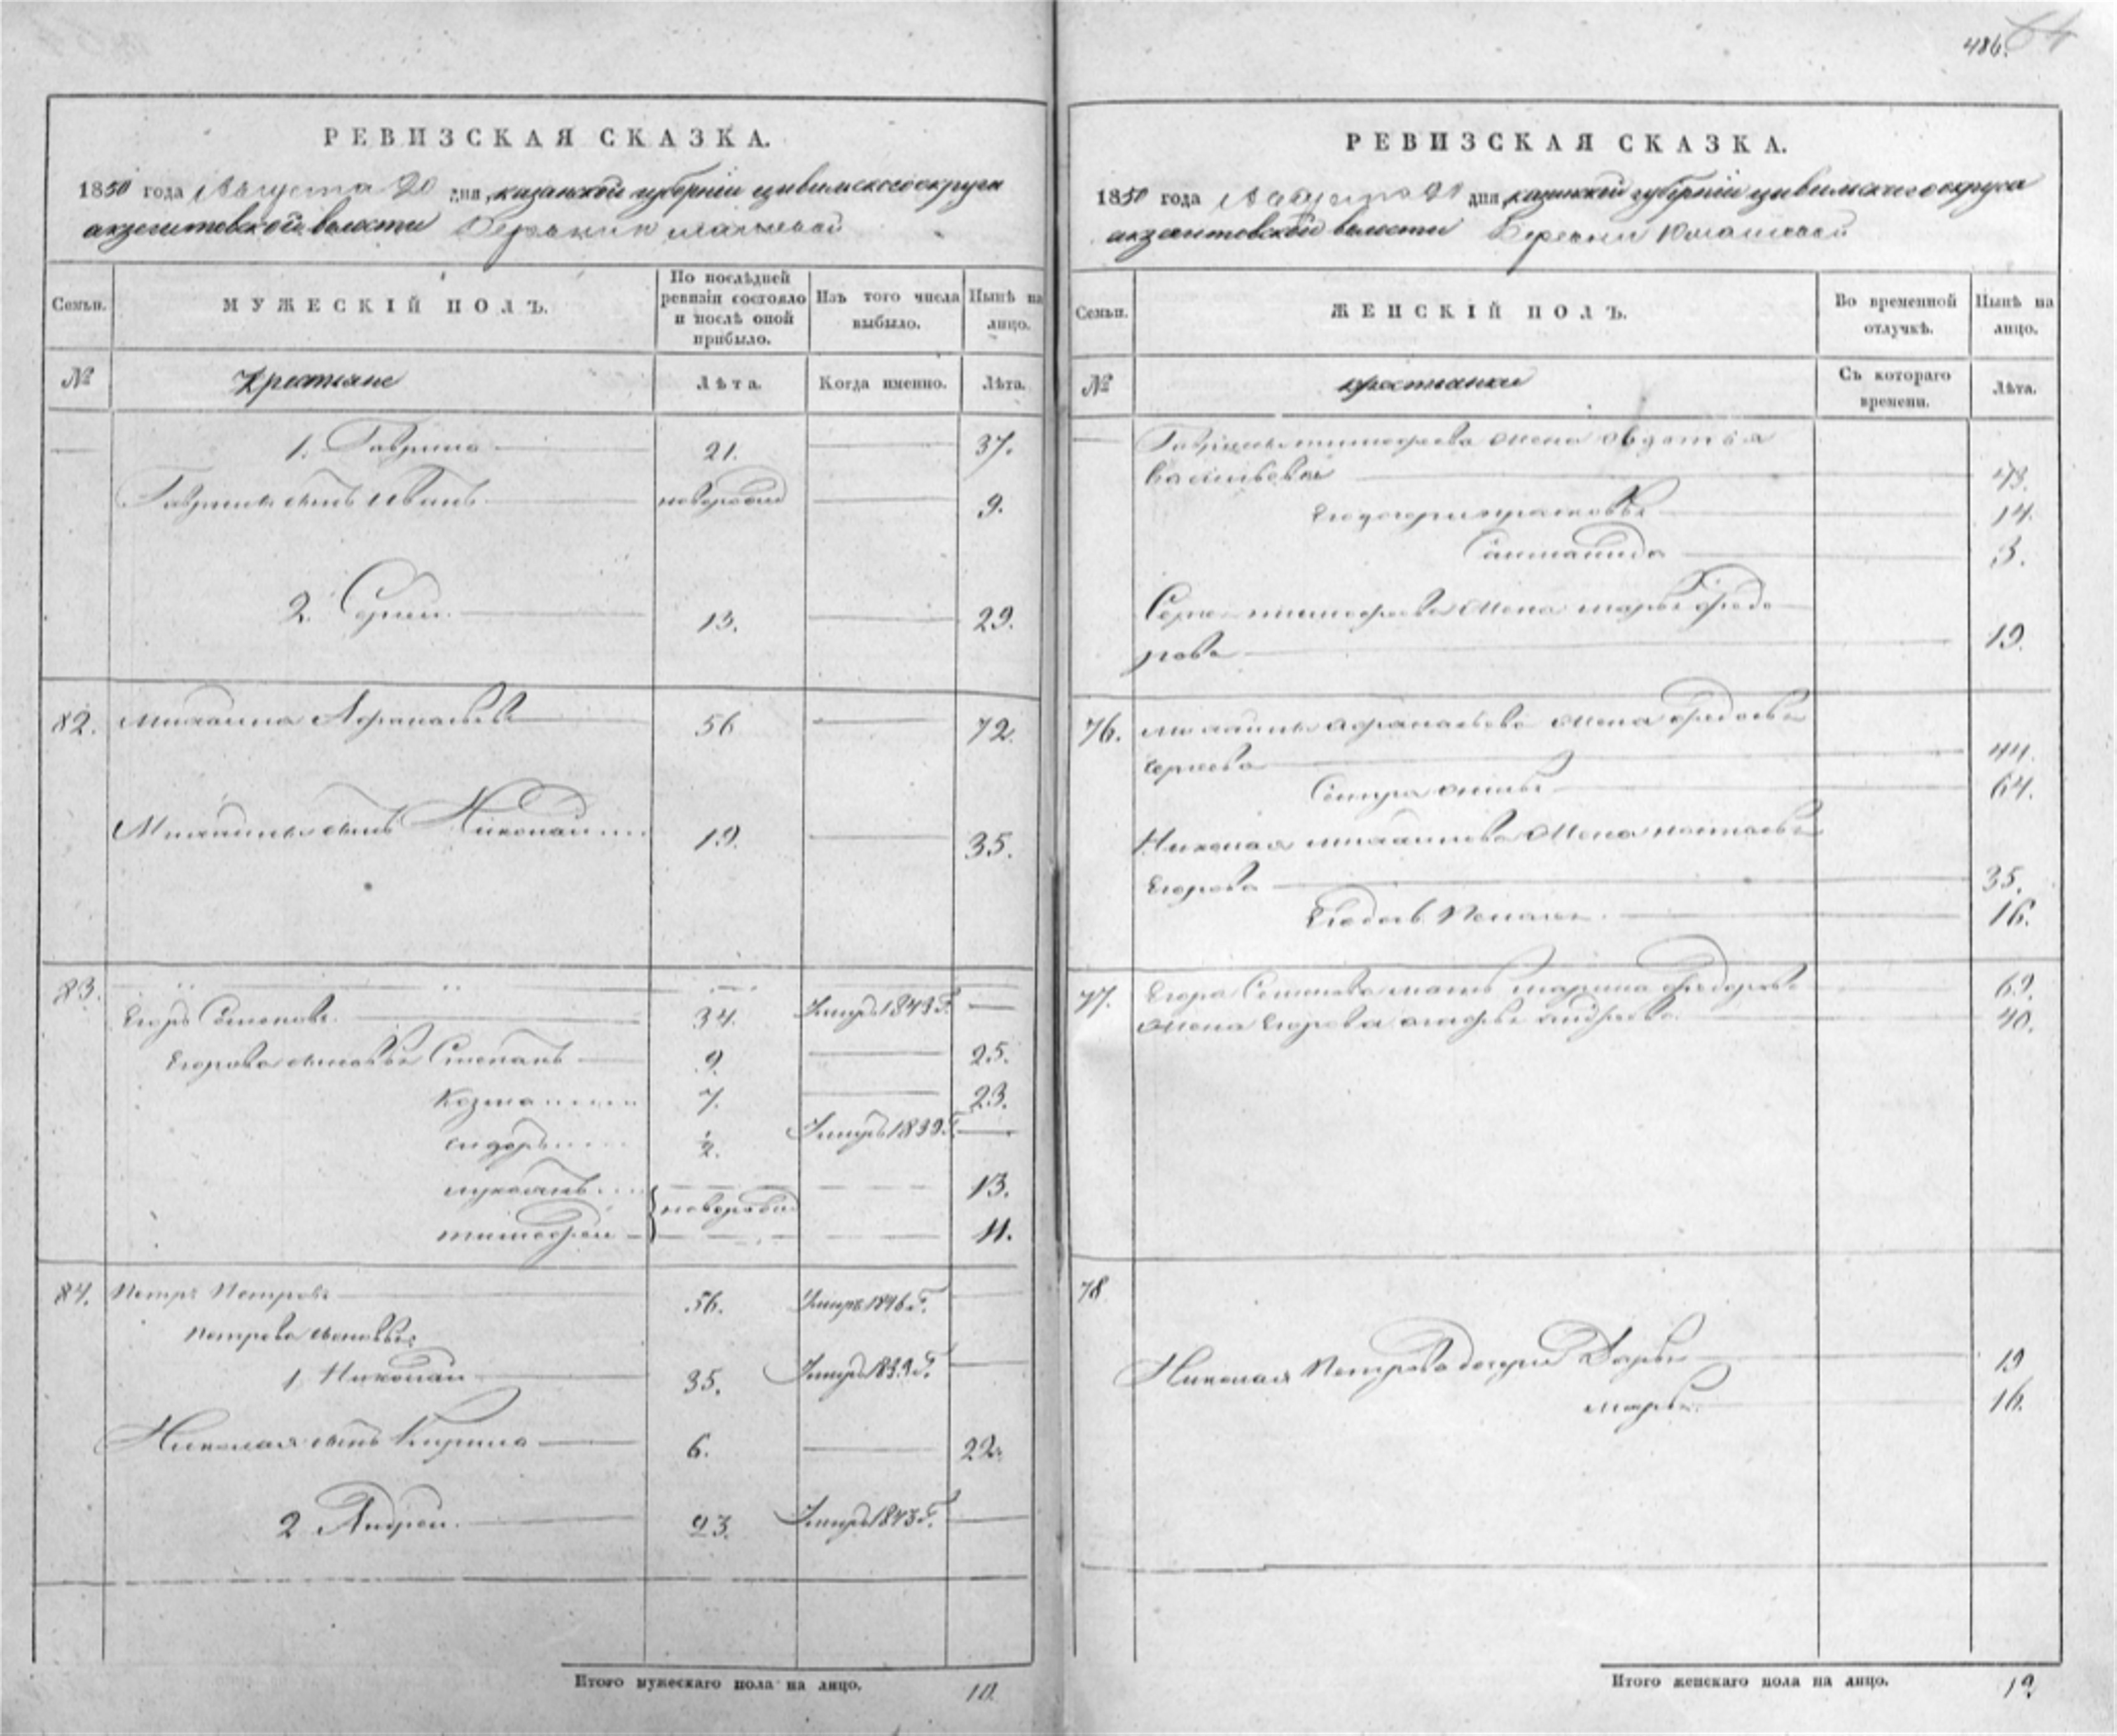 486. 64
РЕВИЗСКАЯ СКАЗКА.
1850 года Августа 20 дня, казанской губерніи цивильскаго округа
акзегитовской волости Деревни
Семьи.
МУЖЕСКІЙ ПОЛЪ.
По послѣдней ревизіи состояло и послѣ оной прибыло.
Изъ того числа выбыло.
Нынѣ на лицо.
№
Крестьяне
Лѣта.
Когда именно.
Лѣта.
1. Гаврила 21. 37.
Гаврилы сынъ Иванъ новорожден 9.
2. Сергѣй 13. 29.
82. Михайла Афанасьевъ 56 72.
Михайлы сынъ Николай 19. 35.
83.
Егоръ Семеновъ 34. Умеръ 1843 г.
Егоровы сыновья Степанъ 9. 25.
Козма 7. 23.
сидоръ ½. Умеръ 1839 г.
лукоянъ 13.
новорожден
тимофей 11.
84. Петръ Петровъ 56. Умеръ 1846 г.
петрова сыновья
1. Николай 35. Умеръ
Николая сынъ Кирила 6. 22.
2 Андрей 23. Умеръ 1843 г.
Итого мужескаго пола на лицо. 10.
РЕВИЗСКАЯ СКАЗКА.
1850 года Августа 20 дня казанской губерніи цивильскаго округа
акзегитовской волости Деревни Юмашевой
Семьи.
ЖЕНСКІЙ ПОЛЪ.
Во временной отлучкѣ.
Нынѣ на лицо.
№
крестьянки
Съ котораго времени.
Лѣта.
Гаврилы тимофеева жена авдотья
васильева 43.
Его дочери прасковья 14.
3.
Сергея тимофеева жена марья федо
рова 19.
76. михайлы афанасьева жена федосья
сергеева 44.
Сестра 64.
Николая михайлова жена наталья
Егорова 35.
16.
77. Егора Семенова мать марина федорова 69.
жена Егорова агафья андреева 40.
78
Николая Петрова дочери Дарья 19
марья 16.
Итого женскаго пола на лицо. 12